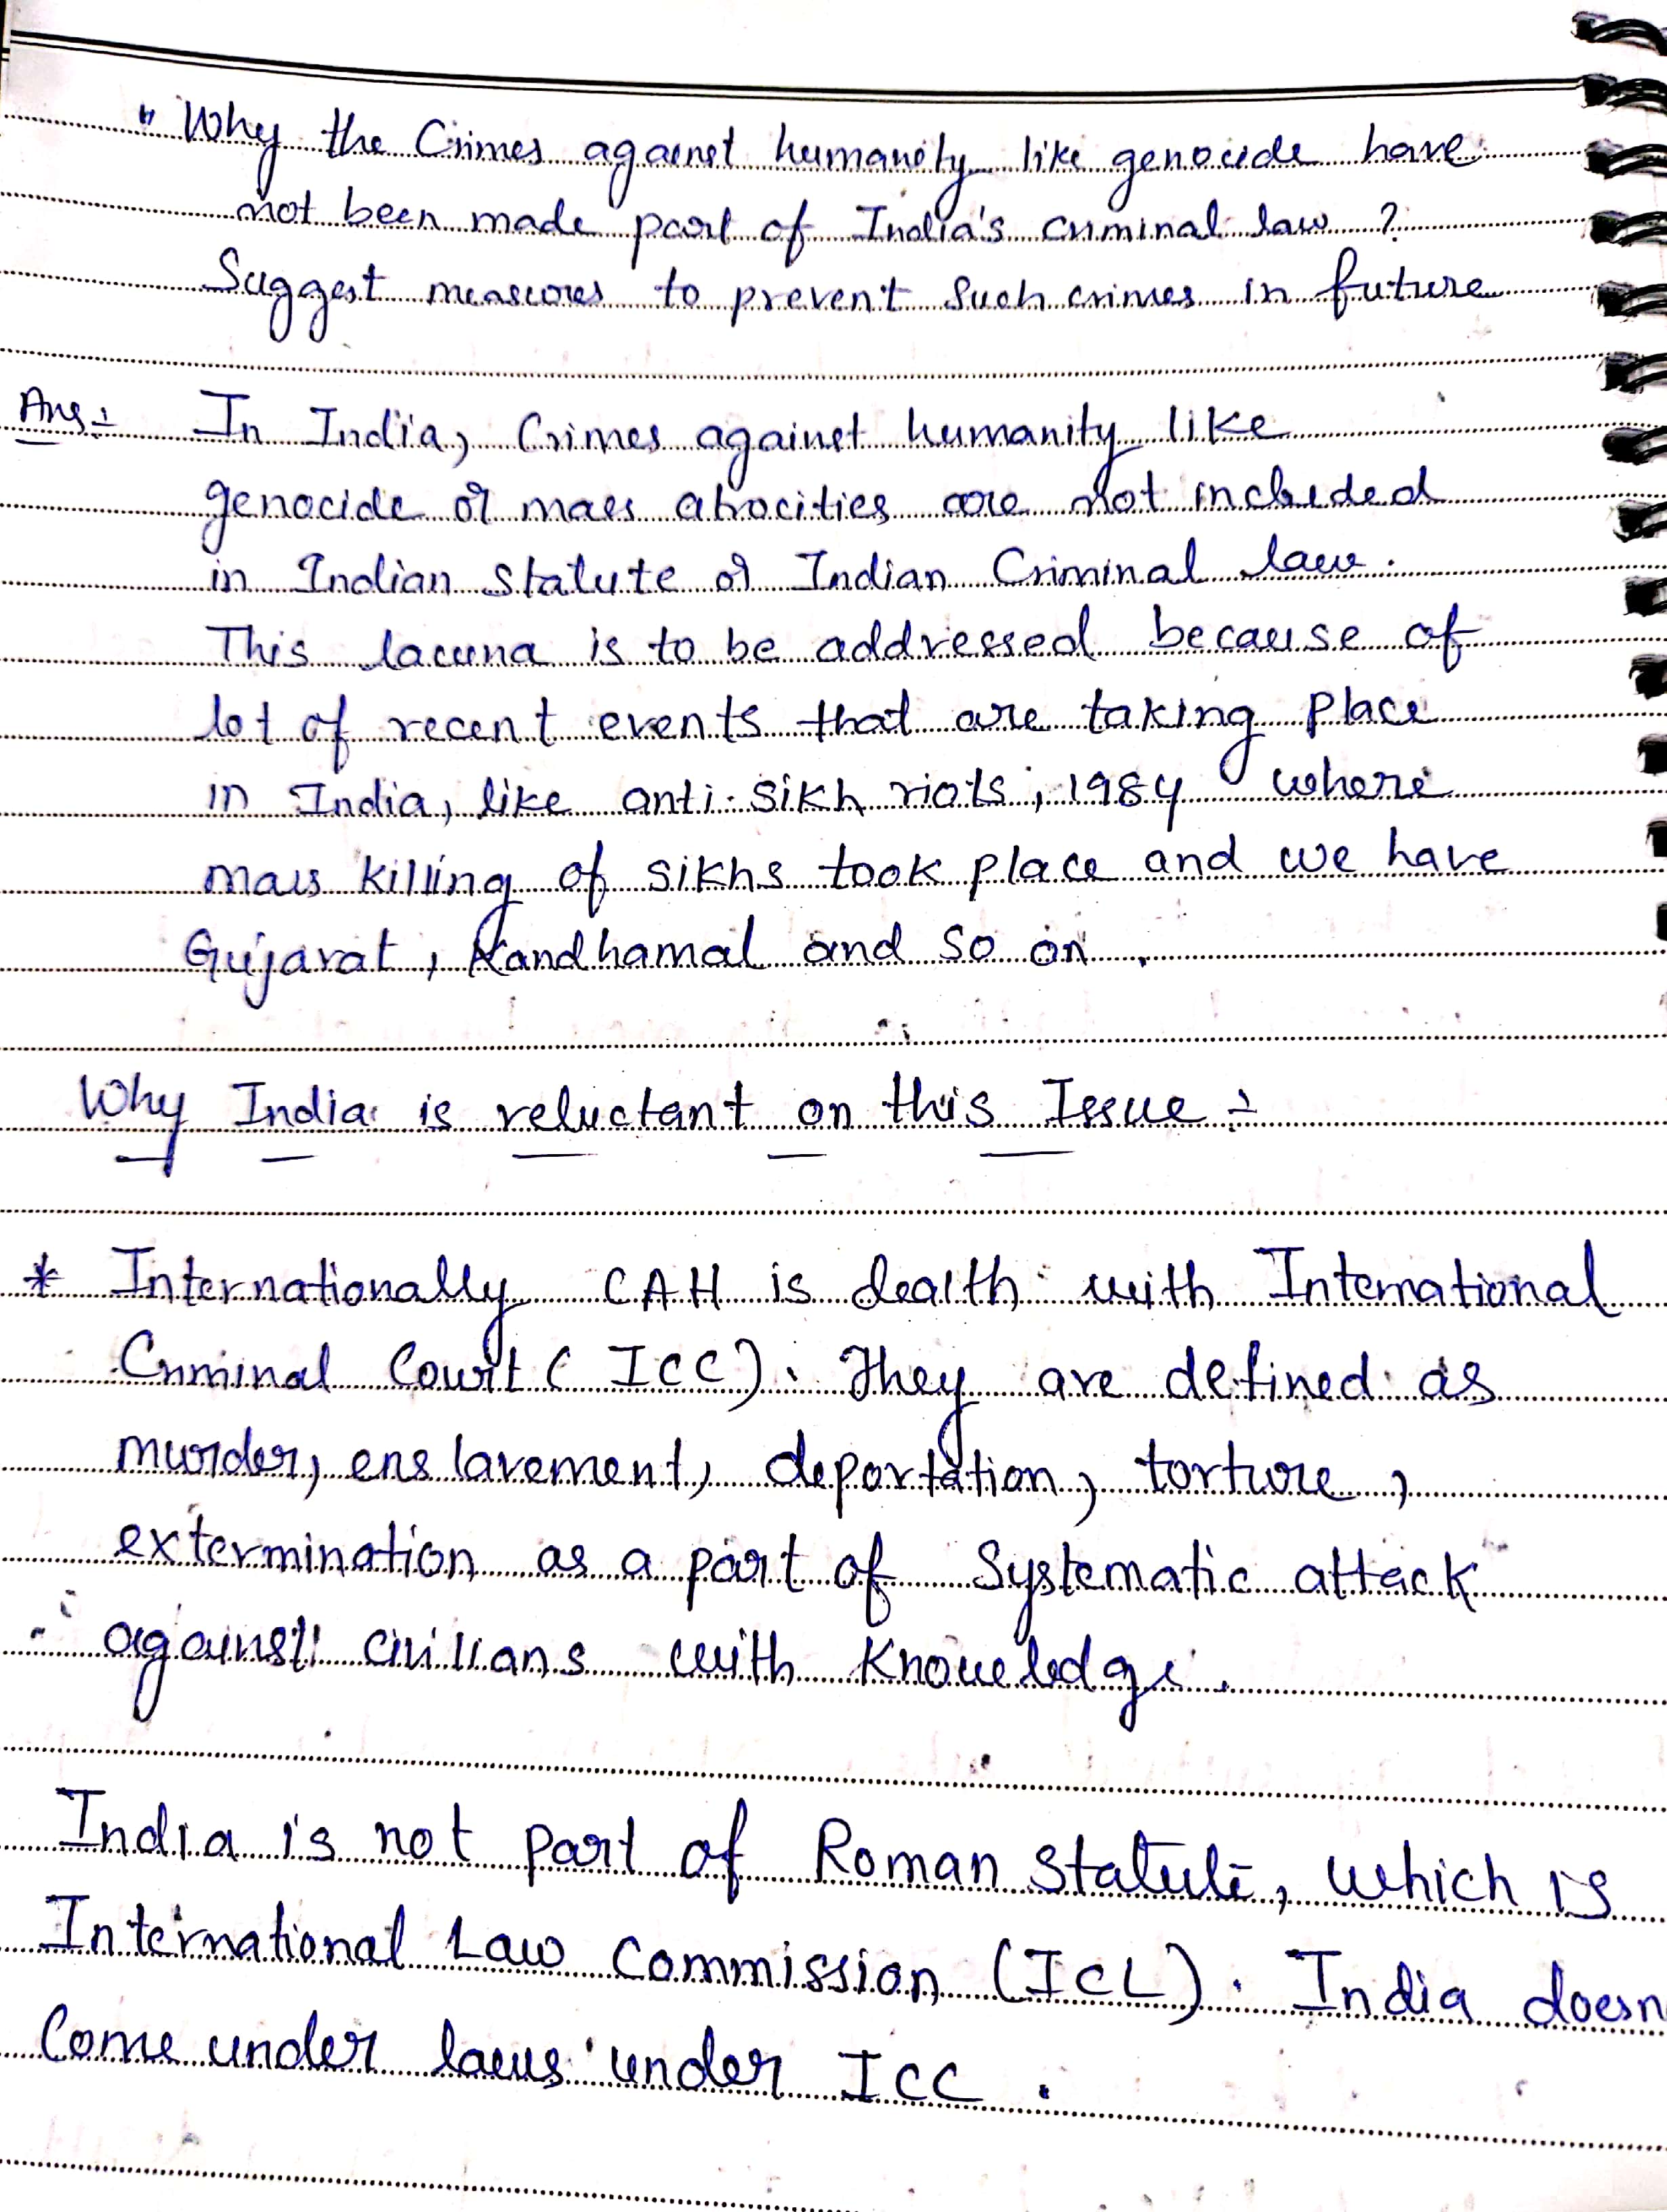 " Why the Crimes against humanity like genocide have
not been made part of India's criminal law ?
Suggest measures to prevent such crimes in future
Ans:- In India, Crimes against humanity like
genocide or mass atrocities are not included
in Indian statute or Indian Criminal law.
This lacuna is to be addressed because of
lot of recent events that are taking place
in India, like anti-sikh riots, 1984 where
mass killing of sikhs took place and we have
Gujarat, Kandhamal and so on.
Why India is reluctant on this Issue :-
* Internationally CAH is dealth with International
Criminal Court ( ICC). They are defined as
murder, enslavement, deportation, torture,
extermination as a part of Systematic attack
against civilians with Knowledge.
India is not part of Roman Statute, which is
International Law Commission (ICL). India doesn
Come under laws under ICC.